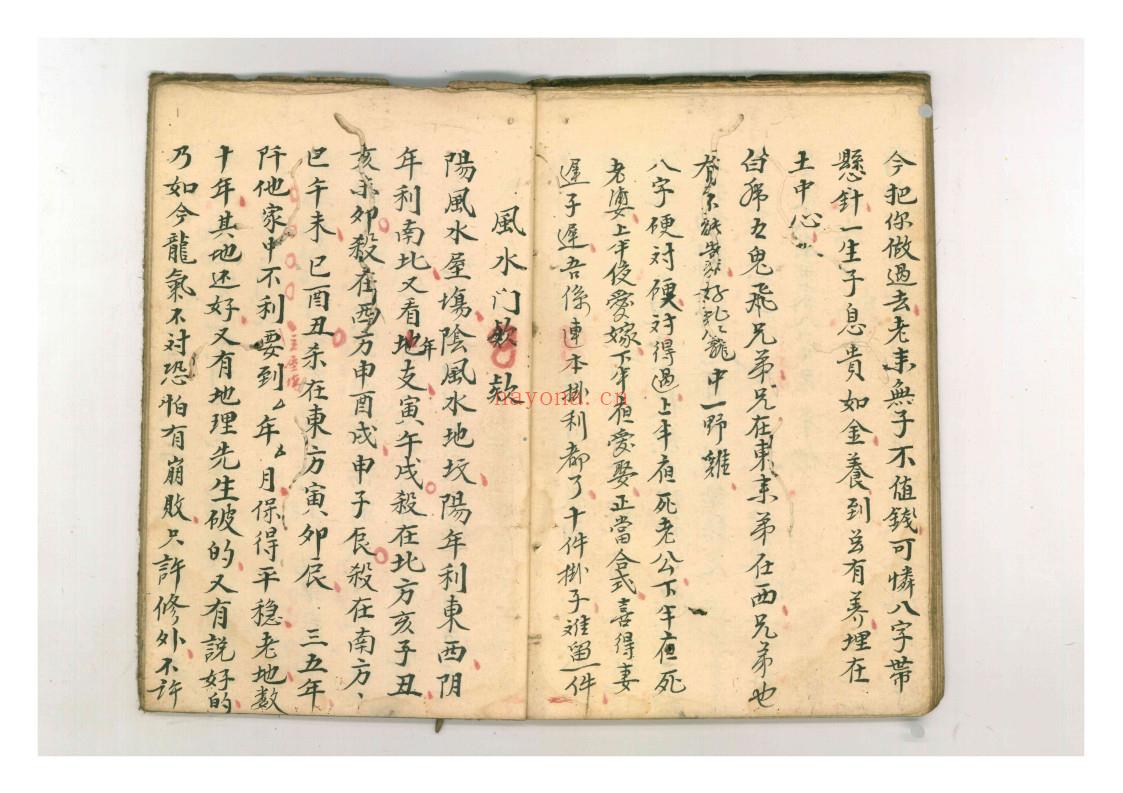 今把你做過去老來無子不值錢可憐八字帶
懸針一生子息貴如金養到若有养埋在
土中心
白席五鬼飛兄弟兄在東來弟在西兄弟也
不 中一野雞
八字硬対硬対得過上半夜死老公下半夜死
老婆上半夜愛嫁下半夜愛娶正當合式喜得妻
遲子遲吾係連本掛利都了十件掛子难留一件
風水门款
陽風水屋塲陰風水地坟陽年利東西阴
年利南北又看地支年寅午戌殺在北方亥子丑
亥未卯殺在西方申酉戌申子辰殺在南方
巳午未巳酉丑杀在東方寅卯辰 三五年
阡他家中不利要到 年 月保得平稳老地数
十年其地还好又有地理先生破的又有説好的
乃如今龍氣不対恐怕有崩敗只許修外不許
nayona.cn